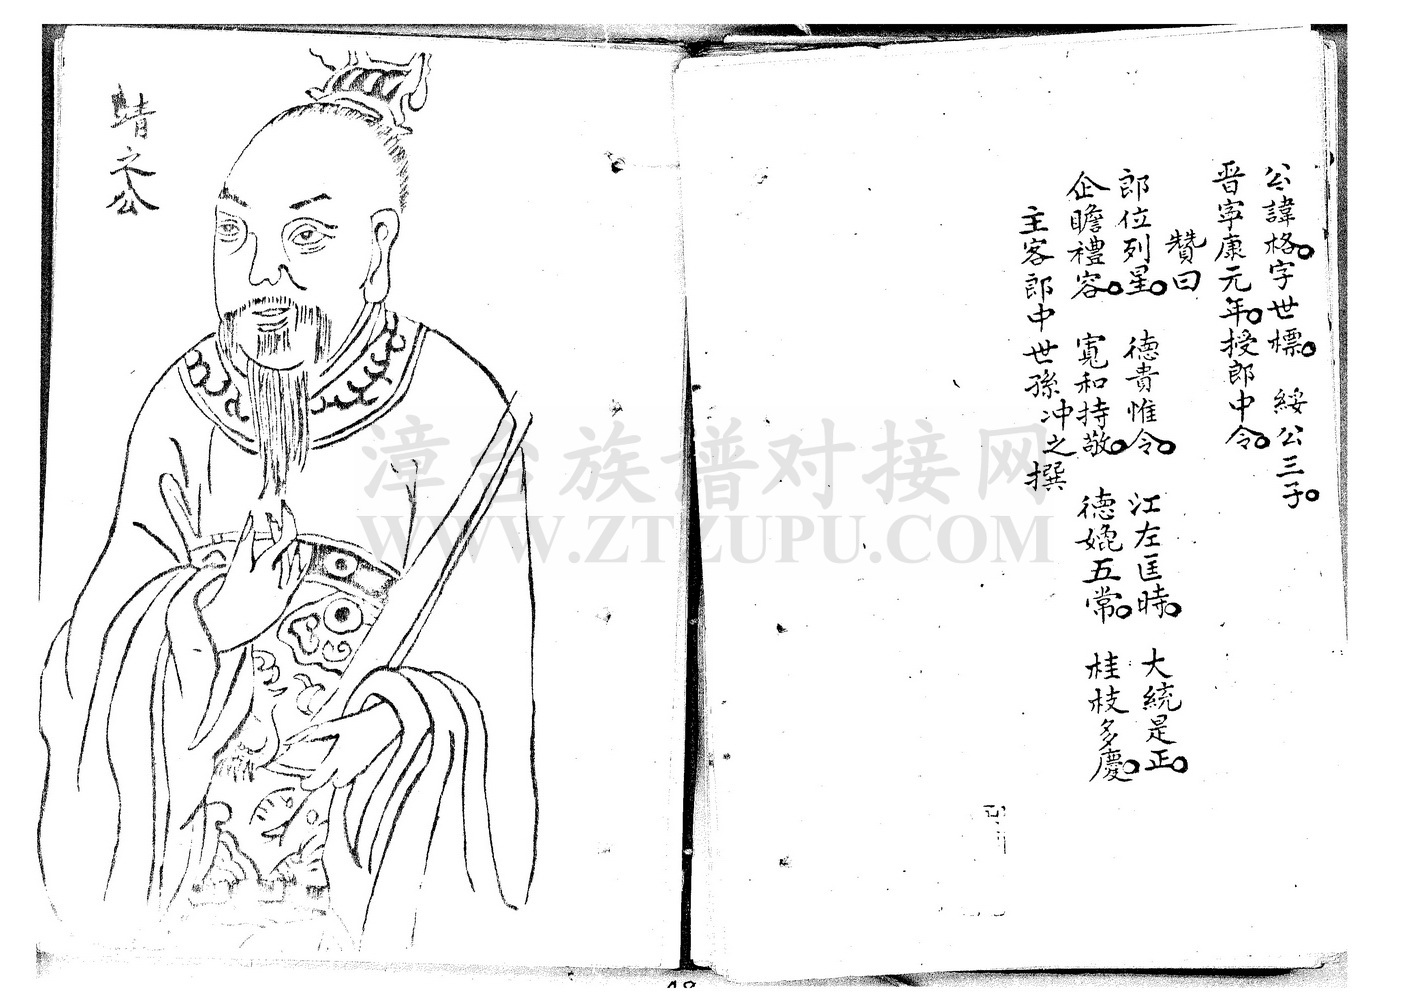 公諱格。字世標。 綏公三子。
晋寜康元年。授郎中令。
贊曰
郎位列星。 德貴惟令。 江左匡時。 大統是正。
企瞻禮容。 寛和持敬。 德媲五常。 桂枝多慶。
主客郎中世孫冲之撰
靖之公
漳台族谱对接网
WWW.ZTZUPU.COM